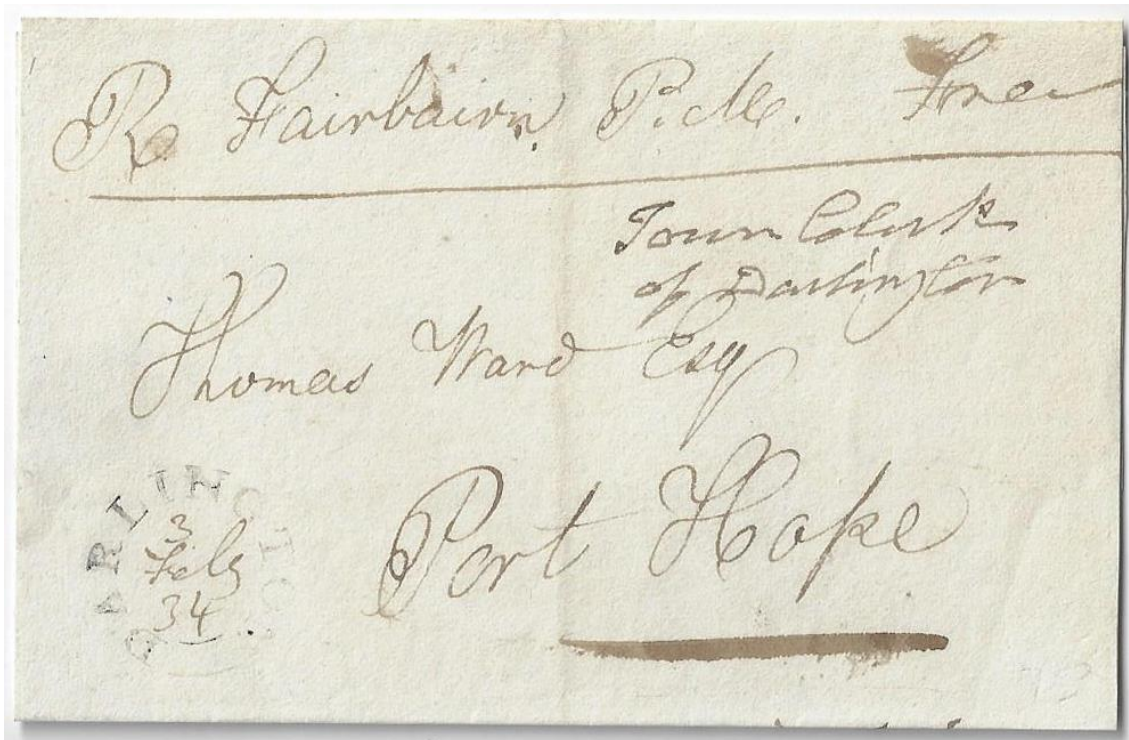 R Fairbairn P.M. Free
Town Clerk
of Darlington
Thomas Ward Esq
Port Hope
DARLINGTON
3
Feby
34